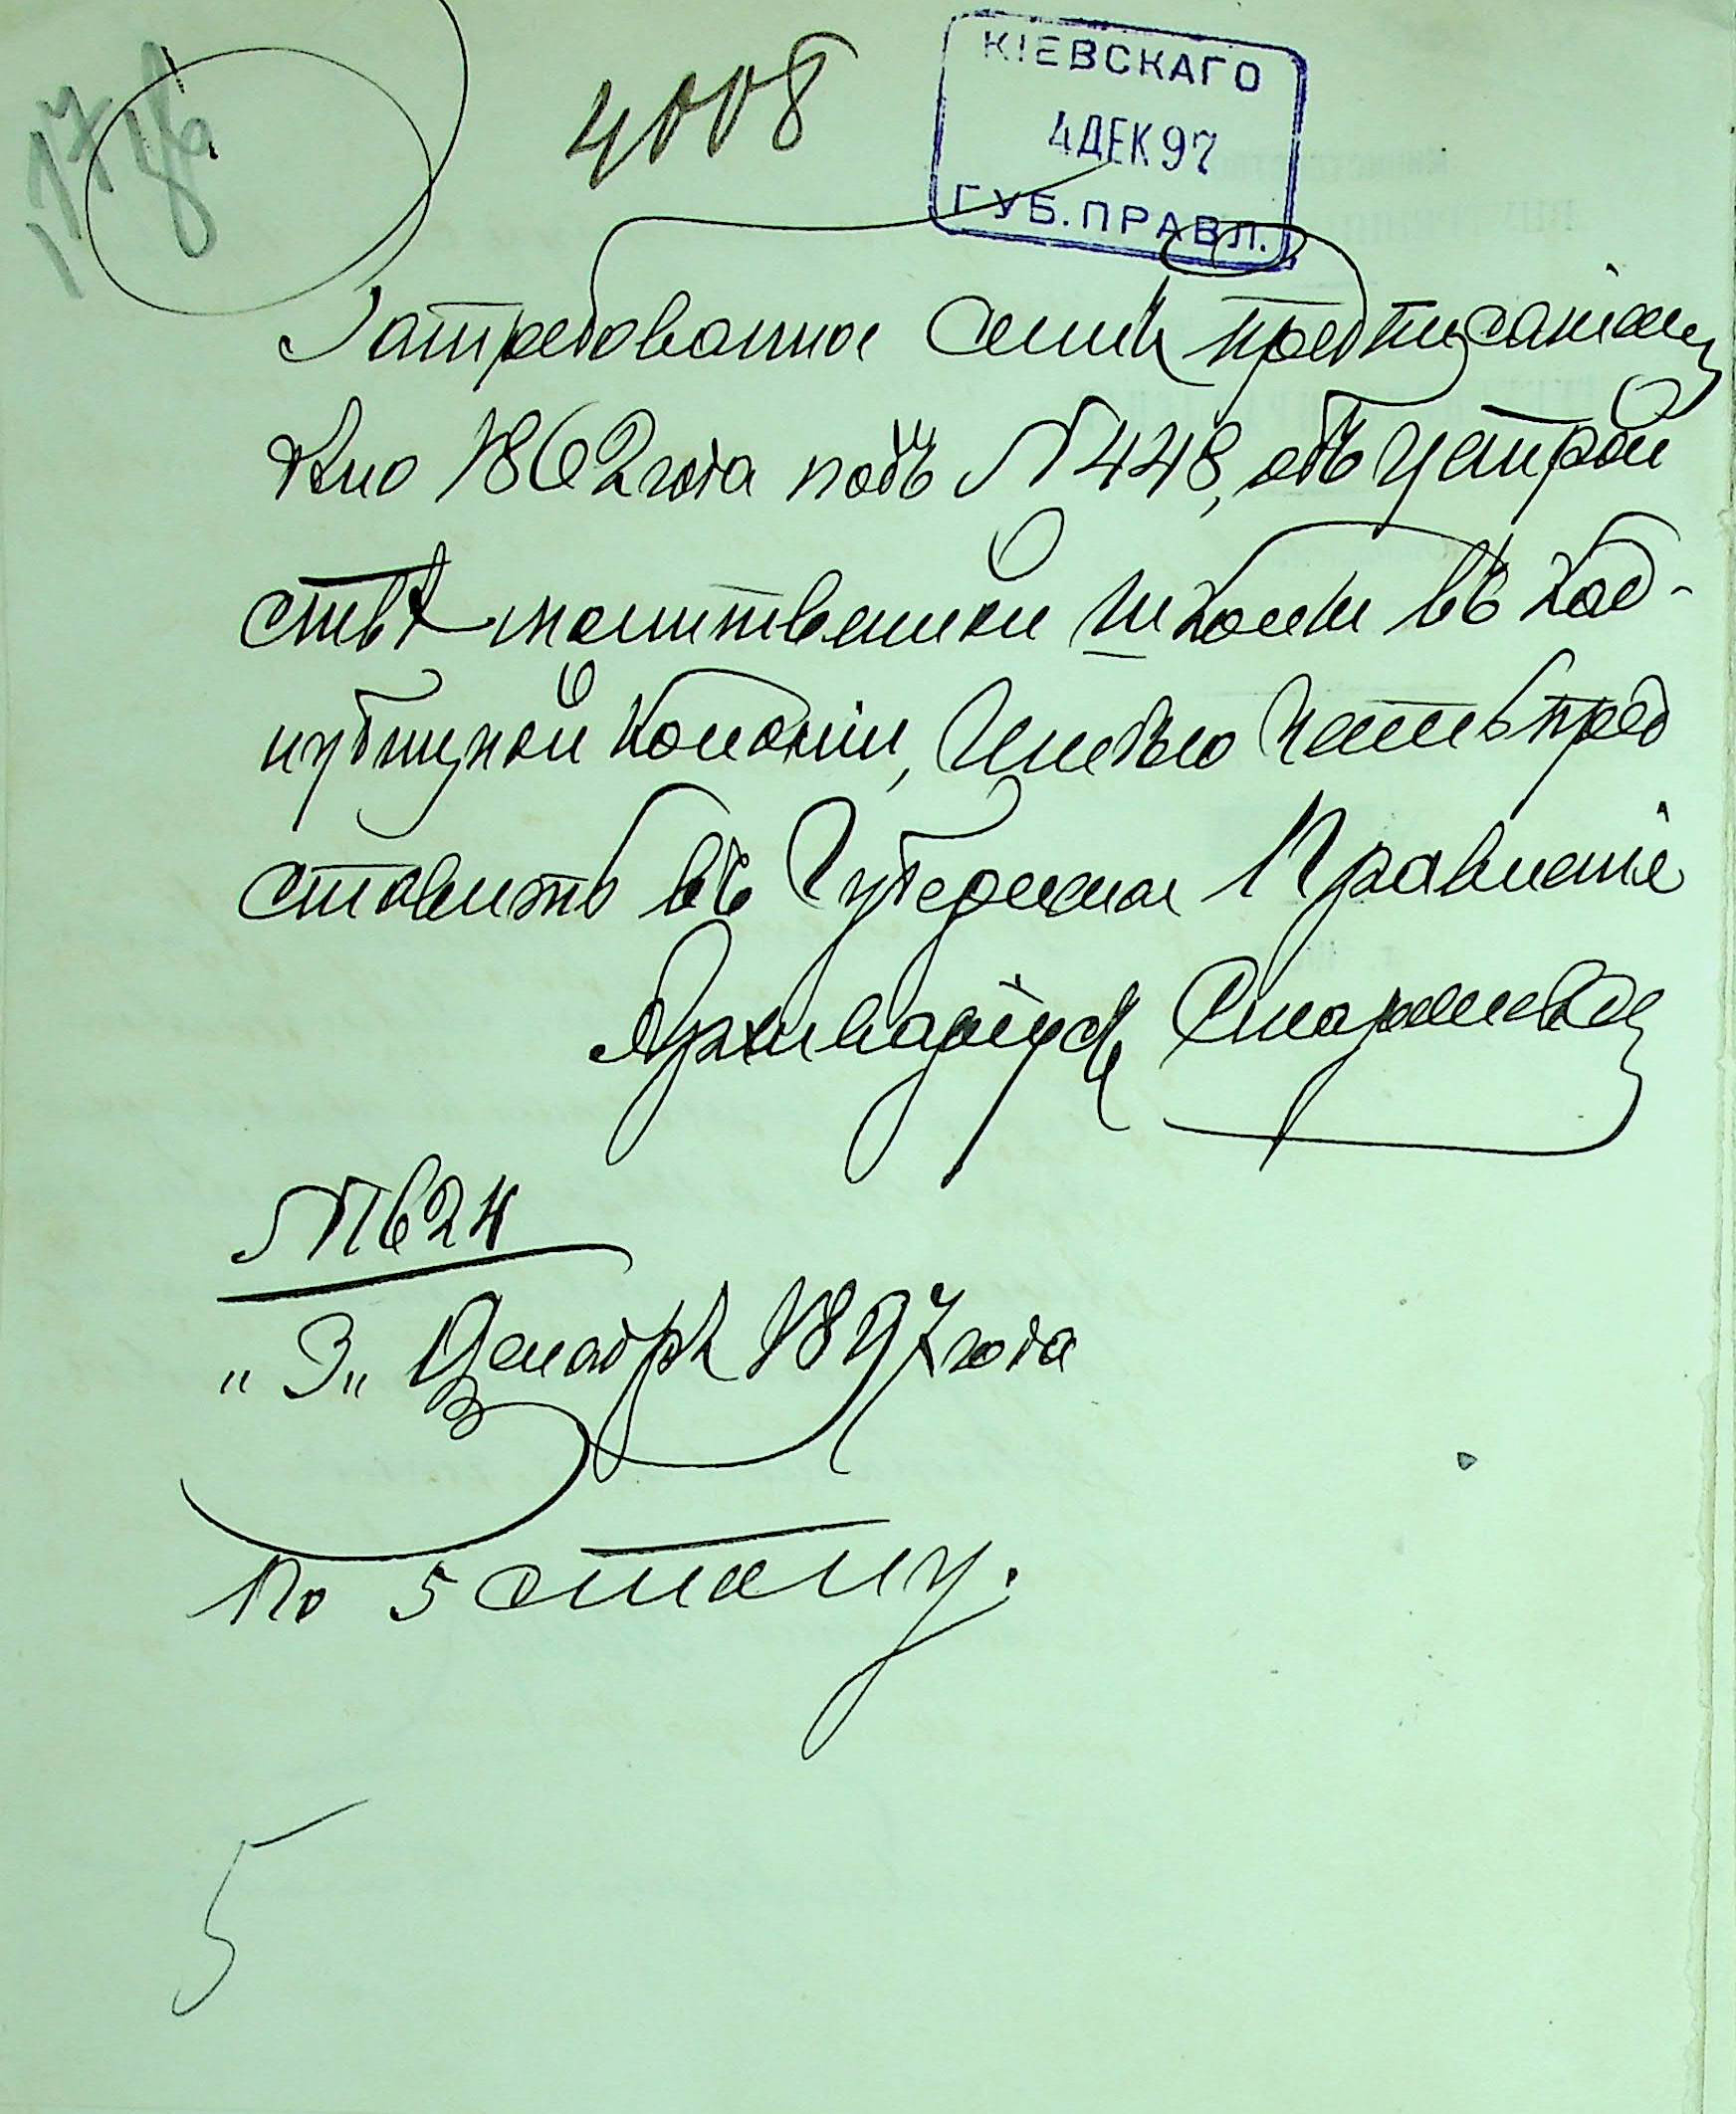 4008
КІЕВСКАГО
4 ДЕК 97
ГУБ. ПРАВЛ.
Затребованное симъ предписаніемъ
1862 года подъ № 448, объ устрой
ствѣ молитвенной школы въ Кад-
лубицкой колоніи, Имѣю честь пред
ставить въ Губернское Правленіе
Архиваріусъ
№ 624
"3" Декабря 1897 года
По 5 стану.
5